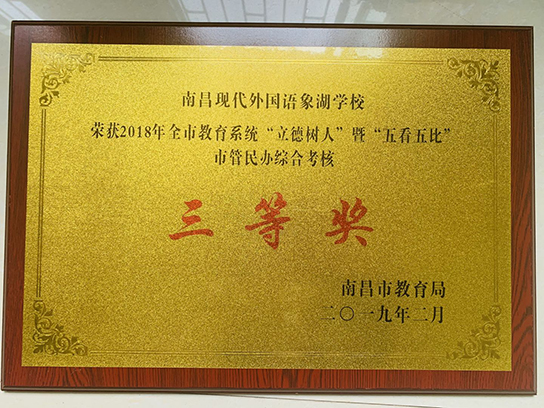 南昌现代外国语象湖学校
荣获2018年全市教育系统“立德树人”暨“五看五比”
市管民办综合考核
三等奖
南昌市教育局
二〇一九年二月